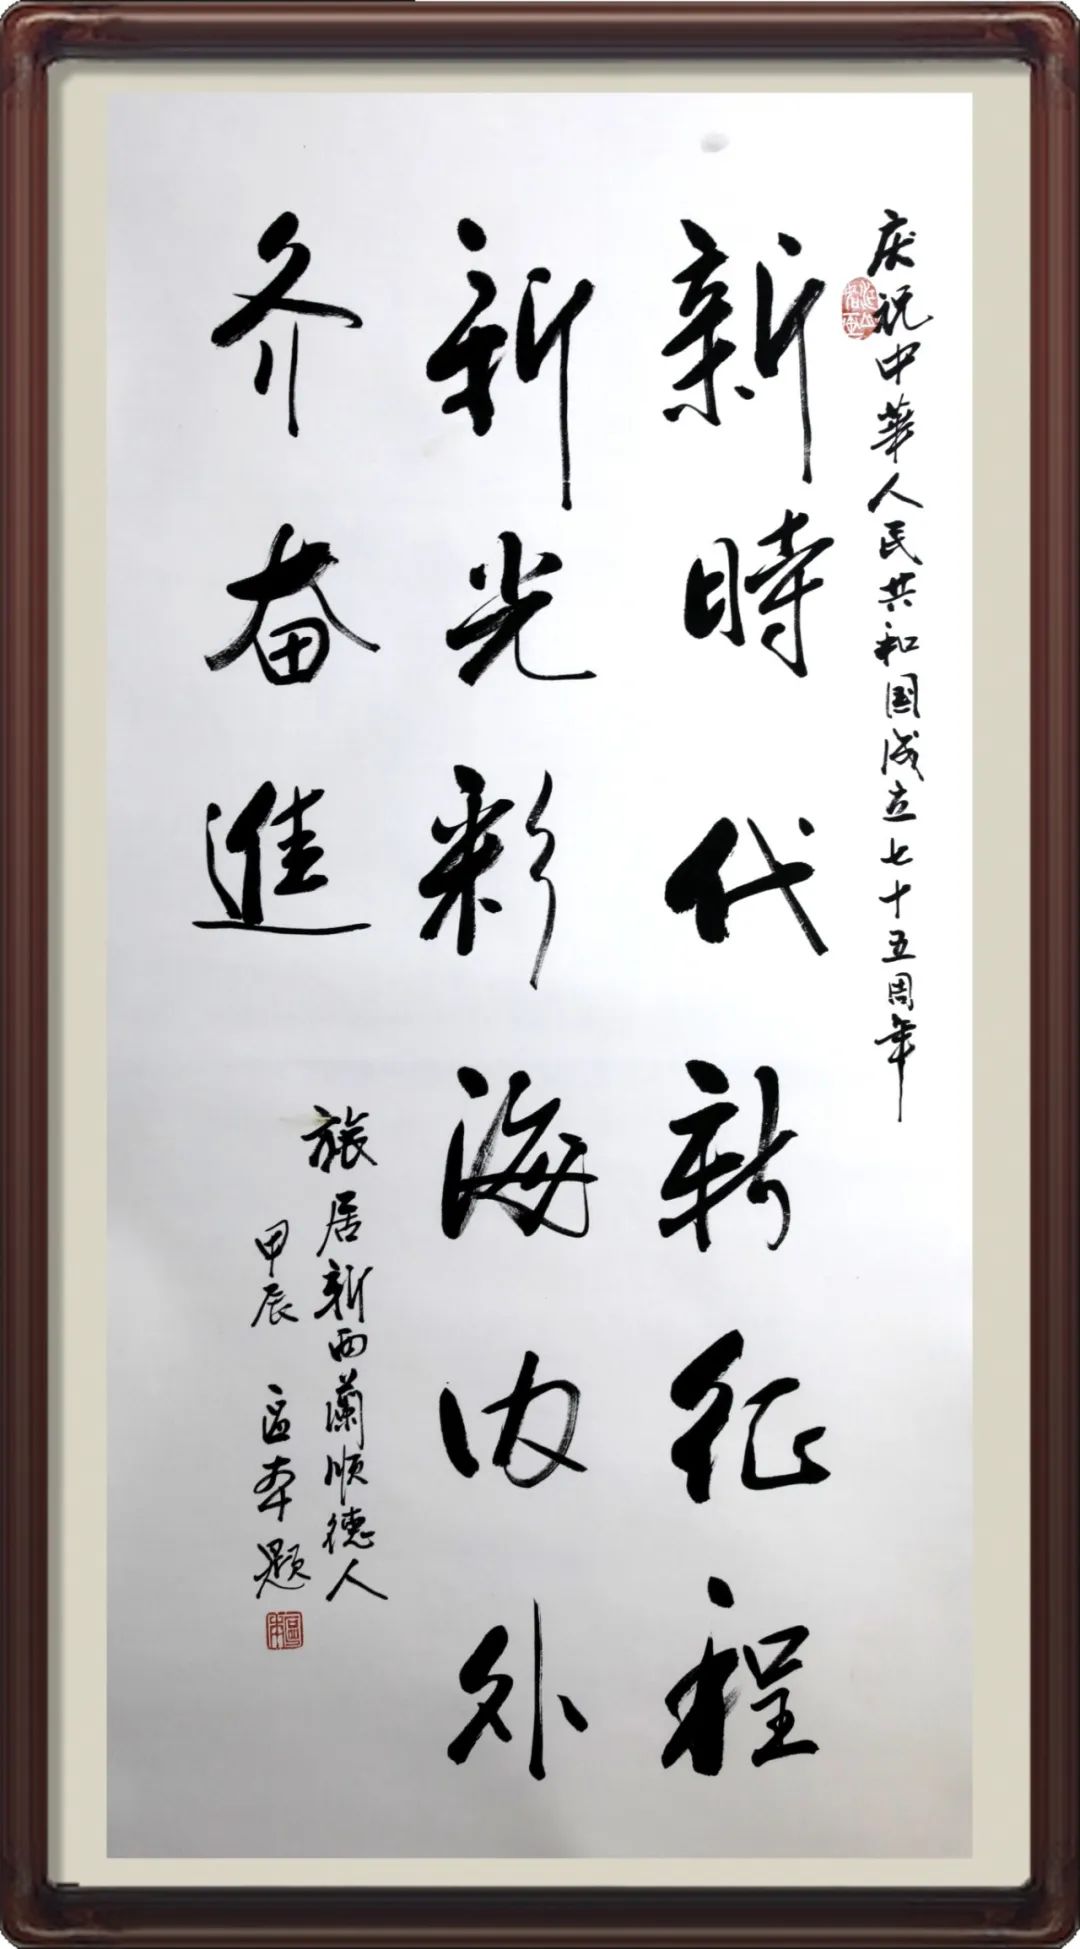 庆祝中華人民共和国成立七十五周年
新時代新征程
新光彩海内外
齐奋進
旅居新西蘭順德人
甲辰 区本题
區本